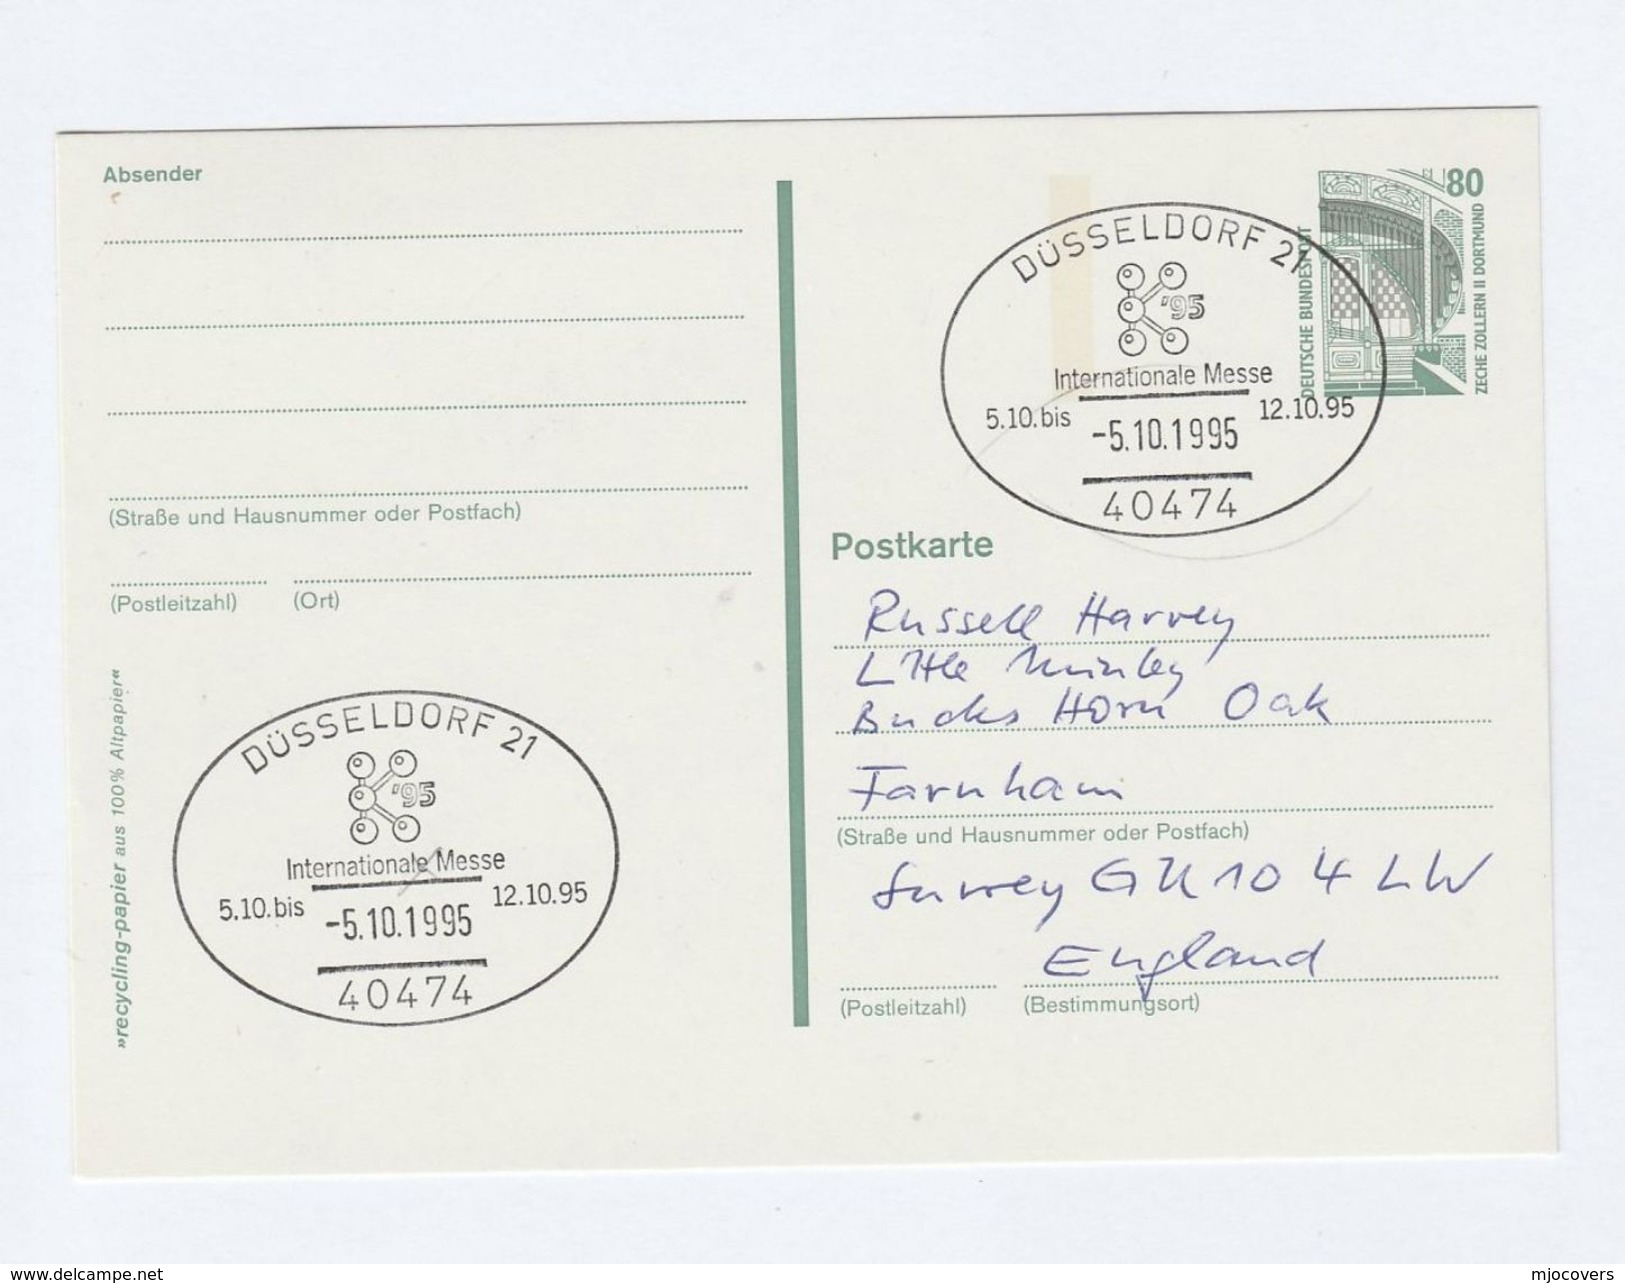 Absender
(Straße und Hausnummer oder Postfach)
(Postleitzahl)
(Ort)
»recycling-papier aus 100% Altpapier«
DÜSSELDORF 21
'95
Internationale Messe
5.10. bis
-5.10.1995
12.10.95
40474
80
DEUTSCHE BUNDESPOST
ZECHE ZOLLERN II DORTMUND
DÜSSELDORF 21
'95
Internationale Messe
5.10. bis
-5.10.1995
12.10.95
40474
Postkarte
Russell Harvey
Little Minley
Bucks Horn Oak
Farnham
(Straße und Hausnummer oder Postfach)
Surrey GU10 4LW
England
(Postleitzahl)
(Bestimmungsort)
www.delcampe.net
mjocovers